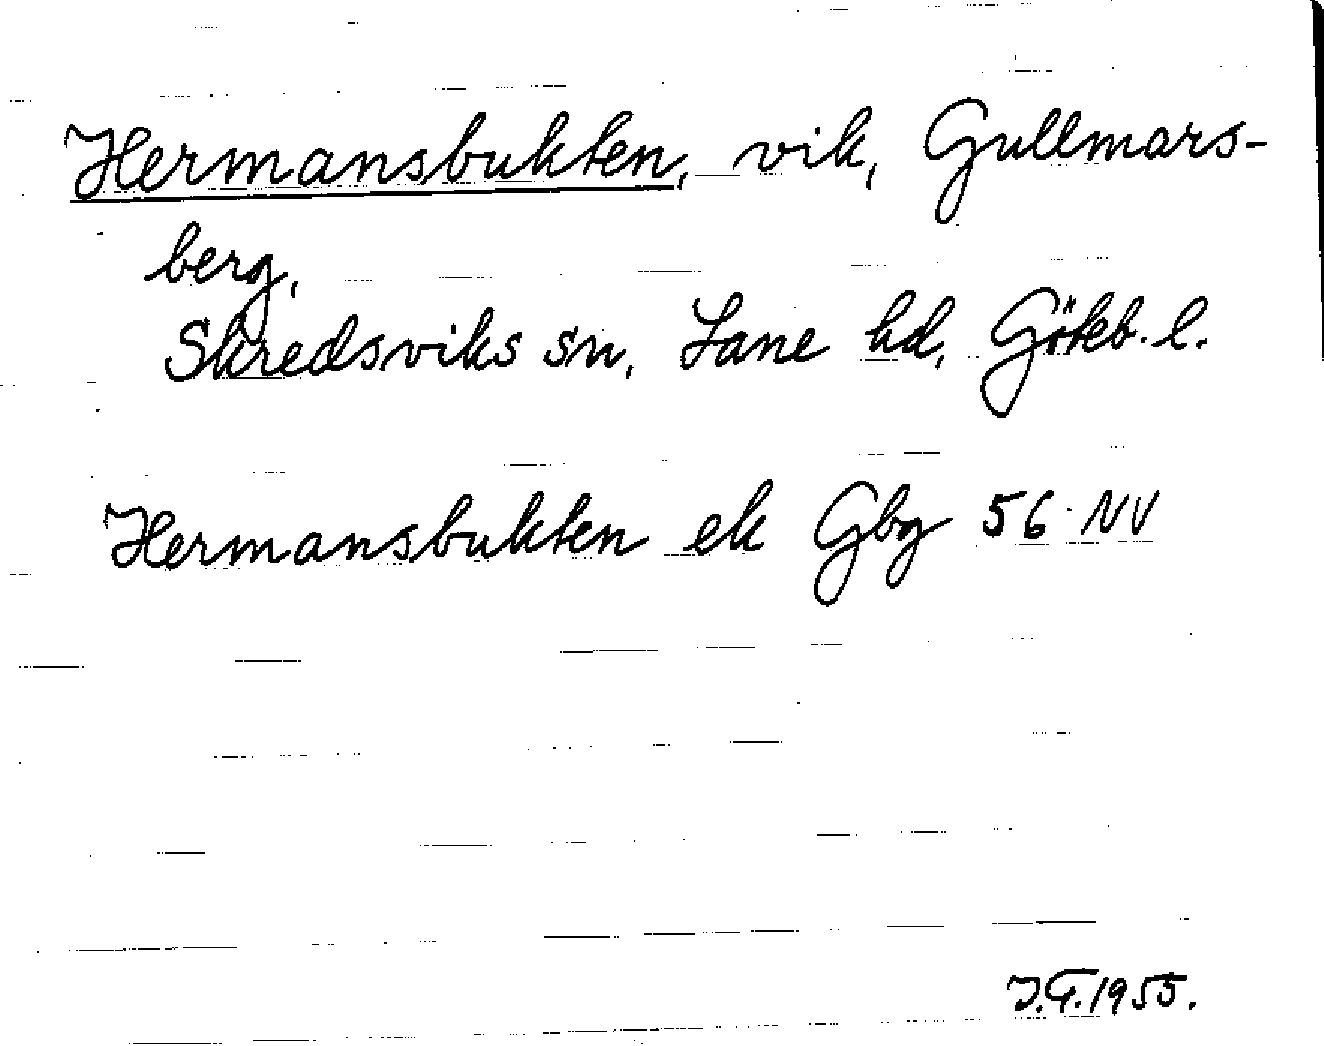 Hermansbukten, vik, Gullmars-
berg,
Skredsviks sn, Lane hd, Göteb. l.
Hermansbukten ek Gbg 56 NV
J.F. 1955.